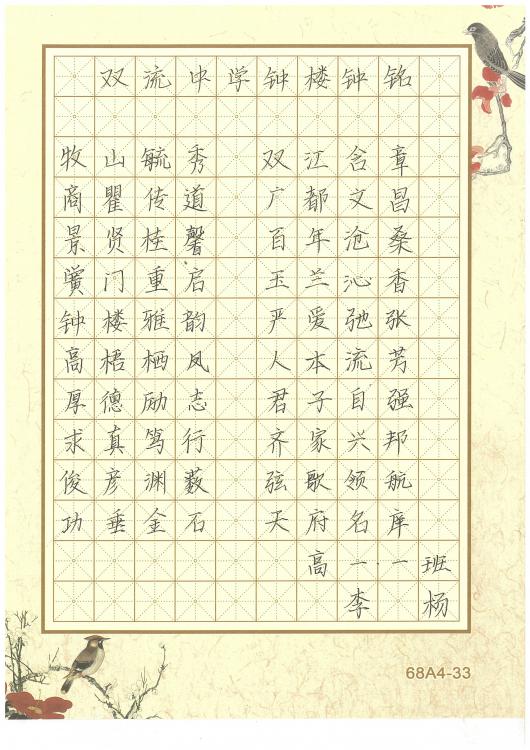 双流中学钟楼钟铭
牧山毓秀 双江含章
商瞿传道 广都文昌
景贤桂馨 百年沧桑
黉门重启 玉兰沁香
钟楼雅韵 严爱弛张
高梧栖凤 人本流芳
厚德励志 君子自强
求真笃行 齐家兴邦
俊彦渊薮 弦歌领航
功垂金石 天府名庠
高一·一班
李 杨
68A4-33